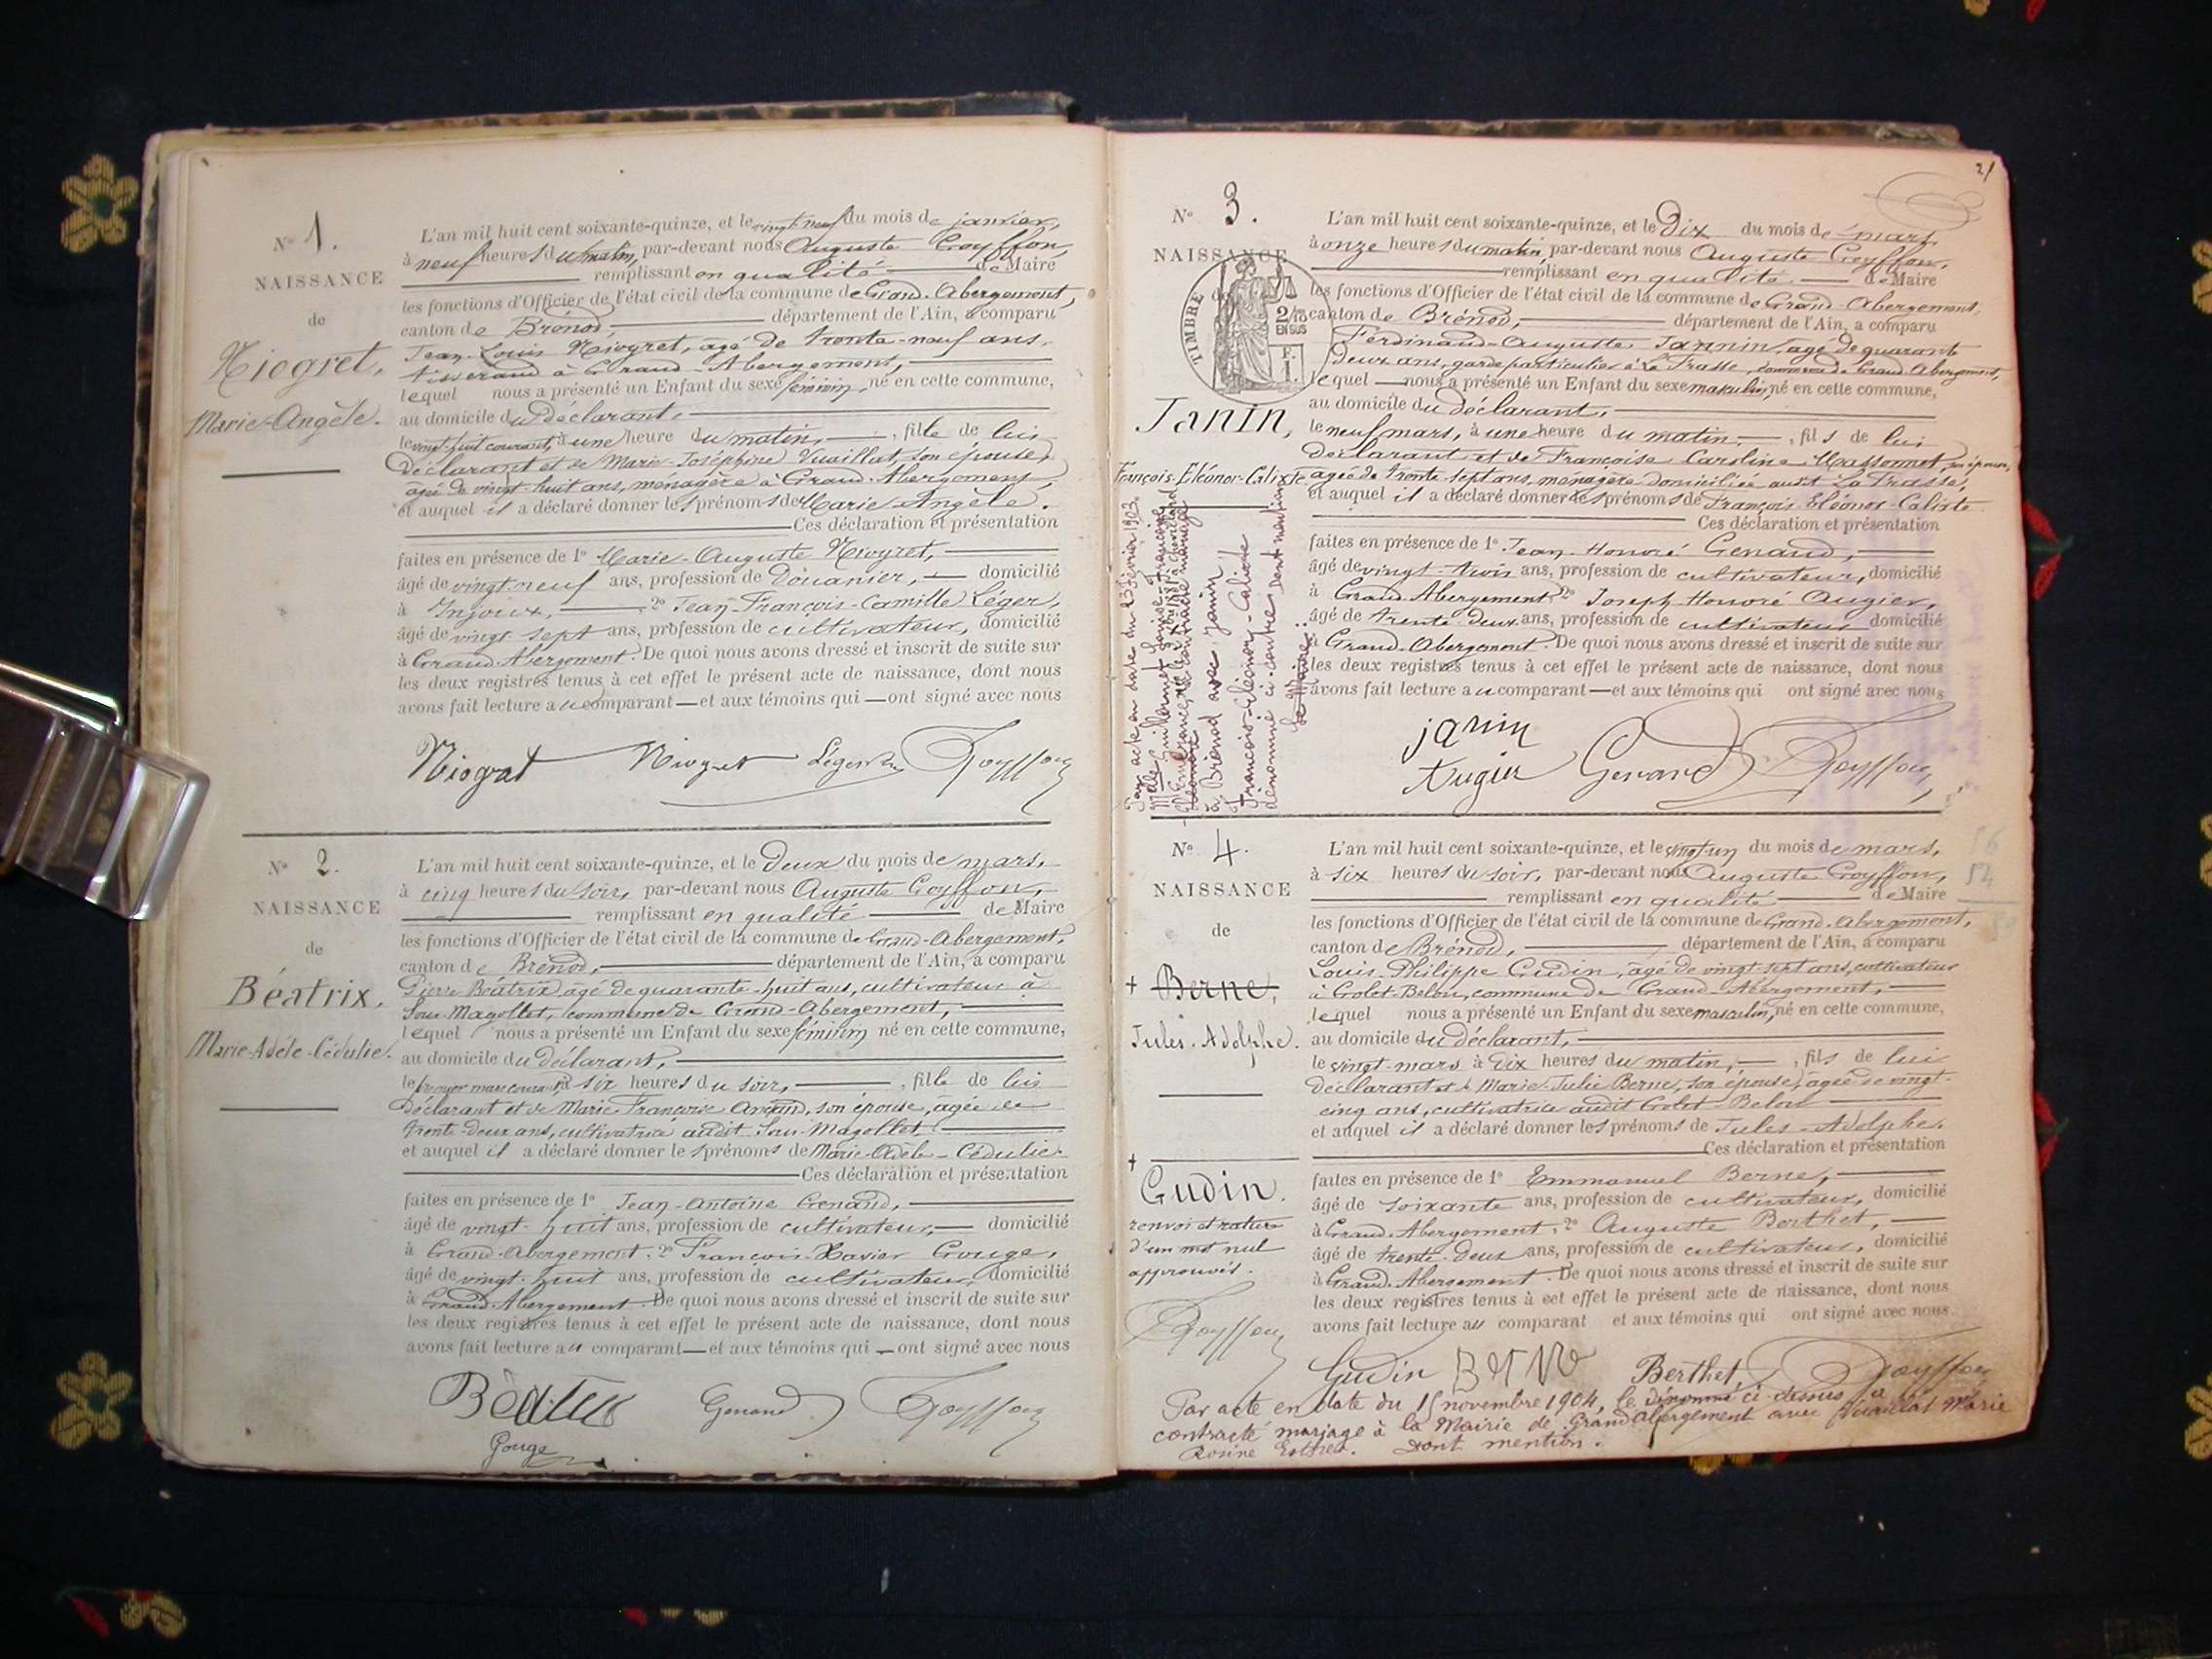 N° 1.
NAISSANCE
de
Niogret,
Marie-Angèle.
L'an mil huit cent soixante-quinze, et le vingt neuf du mois de janvier,
à neuf heures du matin, par-devant nous Auguste Goyffon,
remplissant en qualité de Maire
les fonctions d'Officier de l'état civil de la commune de Grand-Abergement,
canton de Brénod, département de l'Ain, a comparu
Jean-Louis Niogret, âgé de trente-neuf ans,
tisserand à Grand-Abergement,
lequel nous a présenté un Enfant du sexe féminin, né en cette commune,
au domicile du déclarant,
le vingt-huit courant, à une heure du matin, , fille de lui
déclarant et de Marie-Joséphine Vuaillat, son épouse,
âgée de vingt-huit ans, ménagère à Grand-Abergement,
et auquel il a déclaré donner les prénoms de Marie Angèle.
Ces déclaration et présentation
faites en présence de 1° Marie-Auguste Niogret,
âgé de vingt-neuf ans, profession de Douanier, domicilié
à Injoux, 2° Jean-François-Camille Léger,
âgé de vingt sept ans, profession de cultivateur, domicilié
à Grand-Abergement. De quoi nous avons dressé et inscrit de suite sur
les deux registres tenus à cet effet le présent acte de naissance, dont nous
avons fait lecture au comparant et aux témoins qui ont signé avec nous
Niogret Niogret Léger Goyffon
N° 2.
NAISSANCE
de
Béatrix,
Marie-Adèle-Cédulie.
L'an mil huit cent soixante-quinze, et le Deux du mois de mars,
à cinq heures du soir, par-devant nous Auguste Goyffon,
remplissant en qualité de Maire
les fonctions d'Officier de l'état civil de la commune de Grand-Abergement,
canton de Brénod, département de l'Ain, a comparu
Pierre Béatrix, âgé de quarante-huit ans, cultivateur à
Sous-Magollet, commune de Grand-Abergement,
lequel nous a présenté un Enfant du sexe féminin né en cette commune,
au domicile du déclarant,
le premier mars courant, à six heures du soir, , fille de lui
déclarant et de Marie Françoise, son épouse, âgée de
trente-deux ans, cultivatrice audit Sous-Magollet
et auquel il a déclaré donner les prénoms de Marie-Adèle-Cédulie.
Ces déclaration et présentation
faites en présence de 1° Jean-Antoine Genand,
âgé de vingt-huit ans, profession de cultivateur, domicilié
à Grand-Abergement, 2° François-Xavier Gouge,
âgé de vingt-huit ans, profession de cultivateur, domicilié
à Grand-Abergement. De quoi nous avons dressé et inscrit de suite sur
les deux registres tenus à cet effet le présent acte de naissance, dont nous
avons fait lecture au comparant et aux témoins qui ont signé avec nous
Béatrix Genand Goyffon
Gouge
21
N° 3.
NAISSANCE
TIMBRE
2/10
EN SUS
F.
1.
Janin,
François-Eléonor-Calixte
L'an mil huit cent soixante-quinze, et le Dix du mois de mars,
à onze heures du matin, par-devant nous Auguste Goyffon,
remplissant en qualité de Maire
les fonctions d'Officier de l'état civil de la commune de Grand-Abergement,
canton de Brénod, département de l'Ain, a comparu
Ferdinand-Auguste Jannin, âgé de quarante
deux ans, garde particulier à La Frasse, commune de Grand-Abergement,
lequel nous a présenté un Enfant du sexe masculin, né en cette commune,
au domicile du déclarant,
le neuf mars, à une heure du matin, , fils de lui
déclarant et de Françoise Caroline Massonnet, son épouse,
âgée de trente sept ans, ménagère domiciliée audit La Frasse,
et auquel il a déclaré donner les prénoms de François Eléonor-Calixte
Ces déclaration et présentation
faites en présence de 1° Jean-Honoré Genand,
âgé de vingt-trois ans, profession de cultivateur, domicilié
à Grand-Abergement, 2° Joseph-Honoré Augier,
âgé de trente-deux ans, profession de cultivateur domicilié
à Grand-Abergement. De quoi nous avons dressé et inscrit de suite sur
les deux registres tenus à cet effet le présent acte de naissance, dont nous
avons fait lecture au comparant et aux témoins qui ont signé avec nous
Par acte en date du 23 février 1903
Melle Guillermet Louise-Françoise
a contracté mariage
à Brénod avec Janin,
François-Eléonor-Calixte
dénommé ci-contre, dont mention
Le Maire:
janin
Augier Genand Goyffon
N° 4.
NAISSANCE
de
+ Berne,
Jules-Adolphe.
+
Gudin.
renvoi et rature
d'un mot nul
approuvés.
Goyffon
L'an mil huit cent soixante-quinze, et le vingt-un du mois de mars,
à six heures du soir, par-devant nous Auguste Goyffon,
remplissant en qualité de Maire
les fonctions d'Officier de l'état civil de la commune de Grand-Abergement,
canton de Brénod, département de l'Ain, a comparu
Louis-Philippe Gudin, âgé de vingt-sept ans, cultivateur
à Golet-Belou, commune de Grand-Abergement,
lequel nous a présenté un Enfant du sexe masculin, né en cette commune,
au domicile du déclarant,
le vingt mars à dix heures du matin, , fils de lui
déclarant et de Marie-Julie Berne, son épouse, âgée de vingt-
cinq ans, cultivatrice audit Golet-Belou
et auquel il a déclaré donner les prénoms de Jules-Adolphe.
Ces déclaration et présentation
faites en présence de 1° Emmanuel Berne,
âgé de soixante ans, profession de cultivateur, domicilié
à Grand-Abergement, 2° Auguste Berthet,
âgé de trente-deux ans, profession de cultivateur, domicilié
à Grand-Abergement. De quoi nous avons dressé et inscrit de suite sur
les deux registres tenus à cet effet le présent acte de naissance, dont nous
avons fait lecture au comparant et aux témoins qui ont signé avec nous
Gudin Berne Berthet Goyffon
Par acte en date du 15 novembre 1904, le dénommé ci-dessus a
contracté mariage à la Mairie de Grand Abergement avec Vuaillat Marie
Rosine Esther. Dont mention.